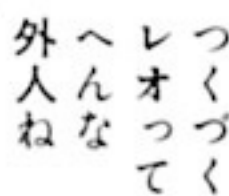 つくづく
レオって
へんな
外人ね